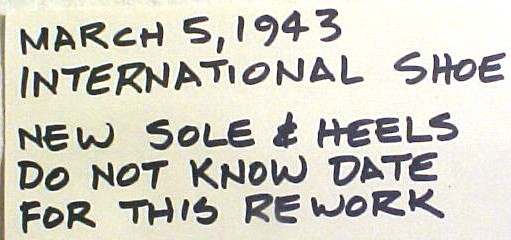 MARCH 5, 1943
INTERNATIONAL SHOE
NEW SOLE & HEELS
DO NOT KNOW DATE
FOR THIS REWORK